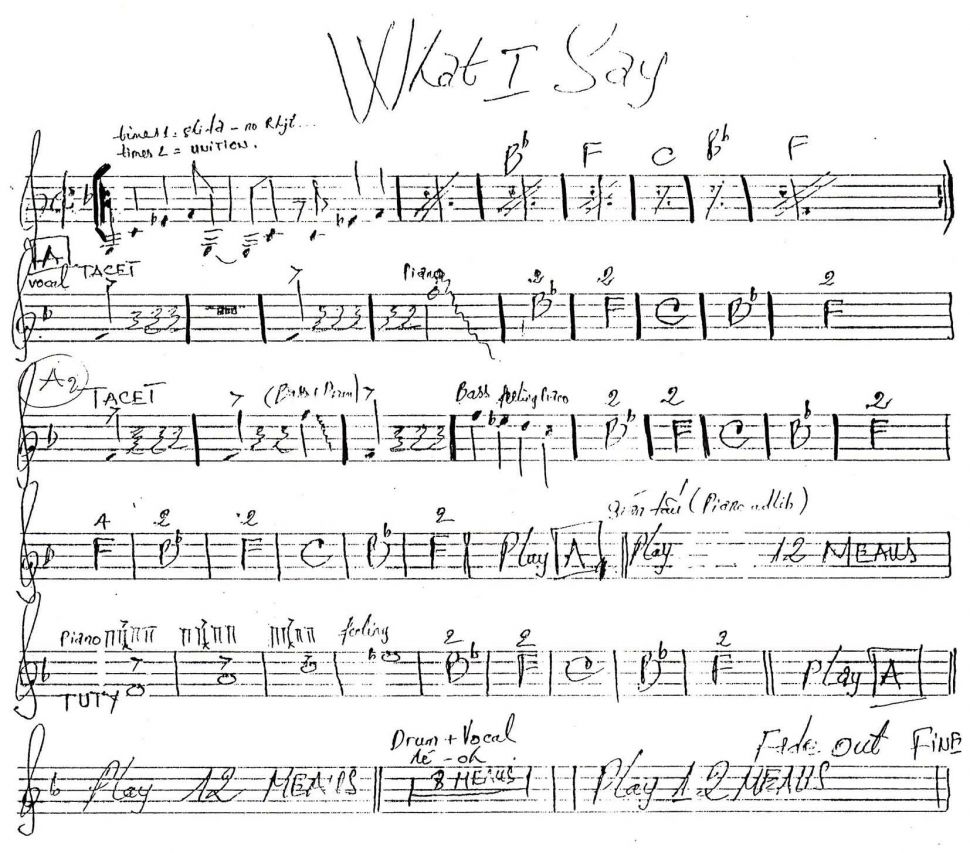 What I Say
times 1 = - no
times 2 = UNITION.
B♭ F C B♭ F
A
vocal TACET Piano
2 2 2
B♭ F C B♭ F
A2 TACET (Bass + Drum) Bass feeling Piano
2 2 2
B♭ F C B♭ F
gián tấu (Piano adlib)
4 2 2 2
F B♭ F C B♭ F Play A Play 12 MEAUS
Piano feeling
2 2 2
B♭ F C B♭ F Play A
TUTY
Drum + Vocal Fade out FINE
hé - oh
Play 12 MEAUS 8 MEAUS Play 12 MEAUS